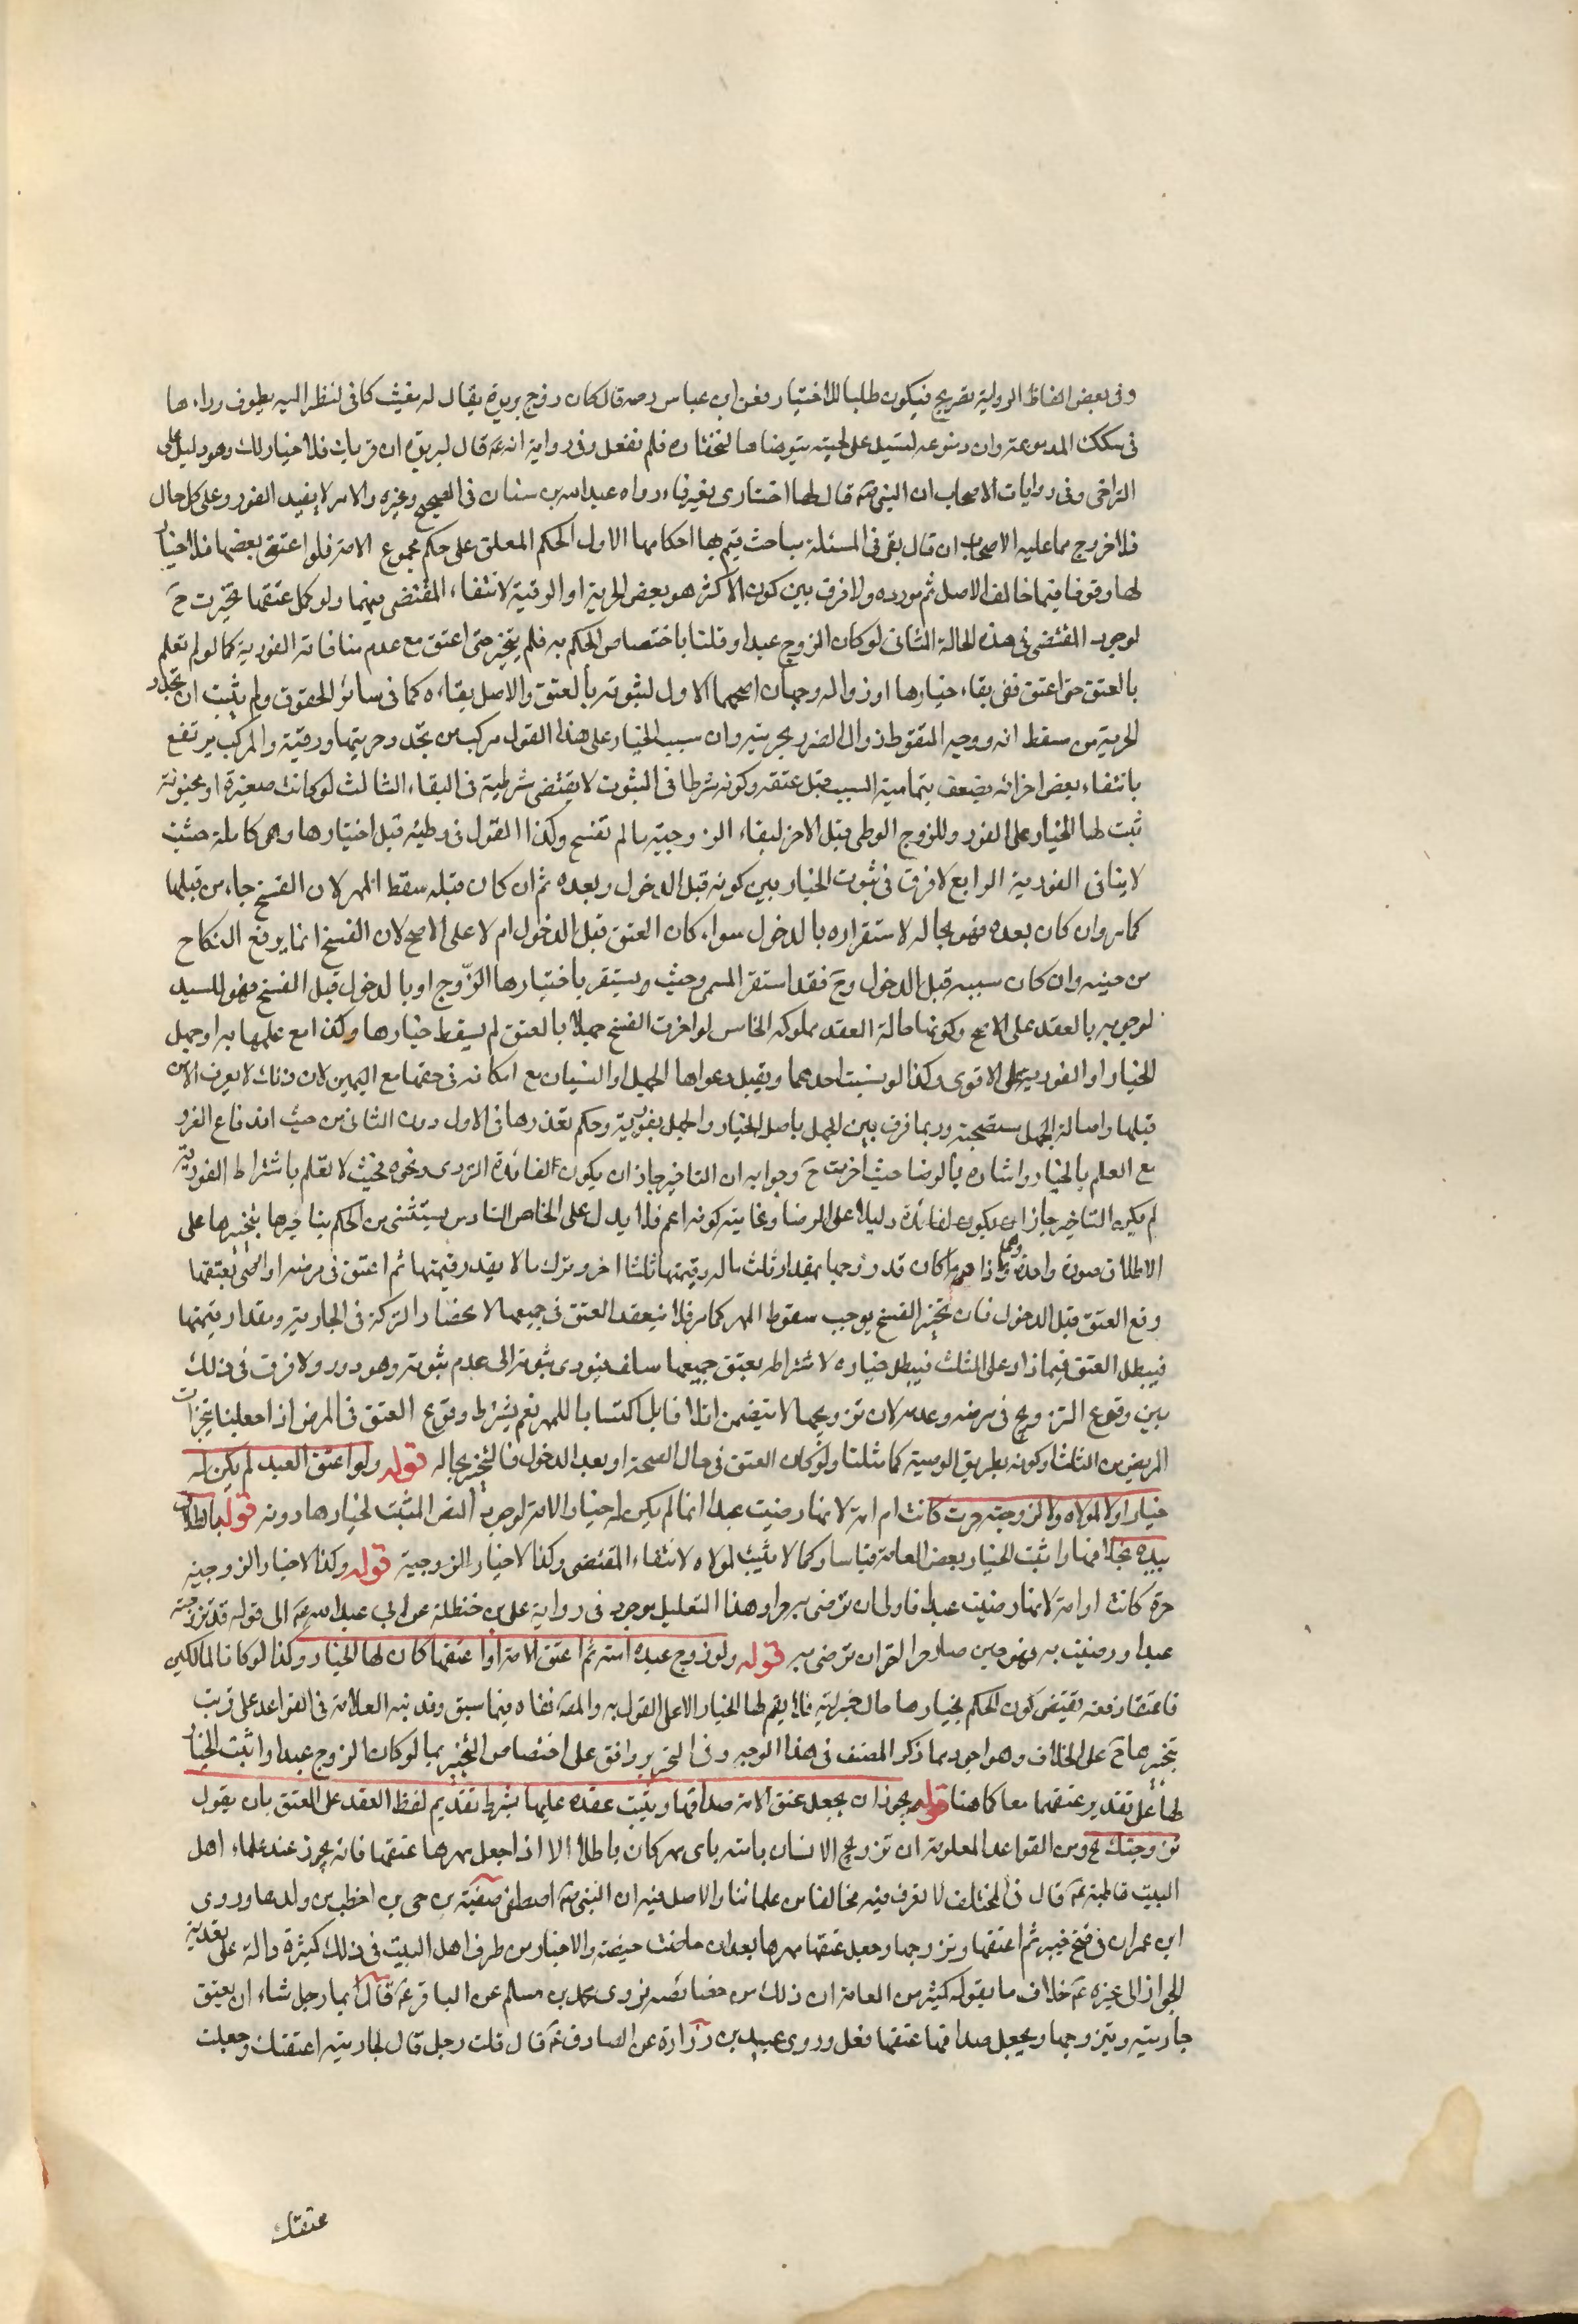 وفى بعض الفاظ الرواية تصريح فيكون طلبا للاختيار فعن ابن عباس رضه قال كان زوج بريرة يقال له مغيث كانى لنظر اليه يطوف وراءها
فى سكك المدينة وان دموعه لتسيل على لحيته يترضاها لتختاره فلم تفعل وفى رواية انه عم قال لبريرة ان قربك فلا خيار لك وهو دليل على
التراخى وفى روايات الاصحاب ان النبى صم قال لها اختارى بغير فاء رواه عبد الله بن سنان فى الصحيح وغيره والامر لا يفيد الفور وعلى كل حال
فلا خروج مما عليه الاصحاب ان قال بقى فى المسئلة مباحث يتم بها احكامها الاول الحكم المعلق على حكم مجموع الامة فلو اعتق بعضها فلا خيار
لها وقوفا فيما خالف الاصل ثم مورده ولا فرق بين كون الاكثر هو بعض الحرية او الرقية لانتفاء المقتضى فيهما ولو كمل عتقها تخيرت ح
لوجود المقتضى فى هذه الحالة الثانى لو كان الزوج عبدا وقلنا باختصاص الحكم به فلم يتخير حتى اعتق مع عدم منافاته الفورية كما لو لم تعلم
بالعتق حتى اعتق ففى بقاء خيارها او زواله وجهان اصحهما الاول لثبوته بالعتق والاصل بقاءه كما فى سائر الحقوق ولم يثبت ان تجدد
الحرية من سقط انه ووجه السقوط زوال الضرر بحريته وان سبب الخيار على هذا القول مركب من تجدد حريتها ورقيته والمركب يرتفع
بانتفاء بعض اجزائه يضعف بتمامية السبب قبل عتقه وكونه شرطا فى الثبوت لا يقتضى شرطية فى البقاء الثالث لو كانت صغيرة او مجنونة
ثبت لها الخيار على الفور وللزوج الوطى قبل الاخر لبقاء الزوجية ما لم تفسخ وكذا القول فى وطئه قبل اختيارها وهى كاملة حيث
لا ينافى الفورية الرابع لا فرق فى ثبوت الخيار بين كونه قبل الدخول وبعده ثم ان كان قبله سقط المهر لان الفسخ جاء من قبلها
كما مر وان كان بعده فهو بحاله لاستقراره بالدخول سواء كان العتق قبل الدخول ام لا على الاصح لان الفسخ انما يرفع النكاح
من حينه وان كان سببه قبل الدخول وح فقد استقر المسمى وحيث يستقر باختيارها الزوج او بالدخول قبل الفسخ فهو للسيد
لوجوبه بالعقد على الاصح وكونها حالة العقد مملوكه الخامس لو اخرت الفسخ جهلا بالعتق لم يسقط خيارها وكذا مع علمها به او جهل
الخيار او الفورية على الاقوى وكذا لو نسيت احدهما ويقبل دعواها الجهل او النسيان مع امكانه فى حقها مع اليمين لان ذلك لا يعرف الا من
قبلها واصالة الجهل مستصحبة وربما فرق بين الجهل باصل الخيار والجهل بفوريته وحكم بعذرها فى الاول دون الثانى من حيث اندفاع الضرر
مع العلم بالخيار واشاره بالرضا حيث اخرت ح وجوابه ان التاخير جاز ان يكون لفائدة التروى ونحوه بحيث لا تعلم باشتراط الفورية
لم يكن التاخير جاز ان يكون لفائدة دليلا على الرضا وغايته كونه اعم فلا يدل على الخاص السادس يستثنى من الحكم بتاخيرها بتخيرها على
الاطلاق صورة واحدة وهى ما اذا كان قد زوجها بمقدار ثلث ماله وقيمتها ثلثا اخر وترك مالا بقدر قيمتها ثم اعتق فى مرضه او اوصى بعتقها
وقع العتق قبل الدخول فان تخير الفسخ يوجب سقوط المهر كما مر فلا ينعقد العتق فى جميعها لانحصار التركة فى الجارية ومقدار قيمتها
فيبطل العتق فيما زاد على الثلث فيبطل خياره لاشتراطه بعتق جميعها سالف فيودى ثبوته الى عدم ثبوته وهو دور ولا فرق فى ذلك
بين وقوع التزويج فى مرضه وعدمه لان تزويجها لا يتضمن اتلافا بل اكتسابا للمهر نعم يشترط وقوع العتق فى المرض اذا جعلنا منجزات
المريض من الثلث او كونه بطريق الوصية كما مثلنا ولو كان العتق فى حال الصحة او بعد الدخول فالتخير بحاله قوله ولو اعتق العبد لم يكن له
خيار ولا لمولاه ولا لزوجته حرة كانت ام امة لانها رضيت عبدا انما لم يكن له خيار الامة لوجود النص المثبت لخيارها دونه قوله الطلاق
بيده بخلافها واثبت الخيار بعض العامة قياسا وكما لا يثبت لمولاه لانتفاء المقتضى وكذا لا خيار الزوجية قوله وكذا لا خيار الزوجية
حرة كانت او امة لانها رضيت عبدا فاولى ان ترضى به حرا وهذا التعليل موجود فى رواية على بن حنظلة عن ابى عبد الله عم الى قوله قد تزوجته
عبدا ورضيت به فهو حين صار حرا احق ان ترضى به قوله ولو زوج عبده امته ثم اعتق الامة او اعتقها كان لها الخيار وكذا لو كانا لمالكين
فاعتقا دفعه يقتضى كون الحكم بخيارها حال حريته فلا يتم لها الخيار الا على القول به والمصه نفاه فيما سبق وقد نبه العلامة فى القواعد على ترتب
تخيرها ح على الخلاف وهو اجود مما ذكر المصنف فى هذا الوجه وفى التحرير وافق على اختصاص التخير بما لو كان الزوج عبدا واثبت الخيار
لها على تقدير عتقهما معا كما هنا قوله يجوز ان يجعل عتق الامة صداقها ويثبت عقده عليها بشرط تقديم لفظ العقد على العتق بان يقول
تزوجتك الخ ومن القواعد المعلومة ان تزويج الانسان بامته باى مهر كان باطلا الا اذا جعل مهرها عتقها فانه يجوز عند علماء اهل
البيت قاطبة عم قال فى المختلف لا نعرف فيه مخالفا من علمائنا والاصل فيه ان النبى صم اصطفى صفية بن حى بن اخطب من ولد هارون
ابن عمران فى فتح خيبر ثم اعتقها وتزوجها وجعل عتقها مهرها بعد ان حاضت حيضة والاخبار من طرف اهل البيت فى ذلك كثيرة دالة على تعدية
الجواز الى غيره عم خلاف ما يقوله كثير من العامة ان ذلك من خصائصه فروى محمد بن مسلم عن الباقر عم قال ايما رجل شاء ان يعتق
جاريته ويتزوجها ويجعل صداقها عتقها فعل وروى عبيد بن زرارة عن الصادق عم قال قلت رجل قال لجاريته اعتقتك وجعلت
عتقك